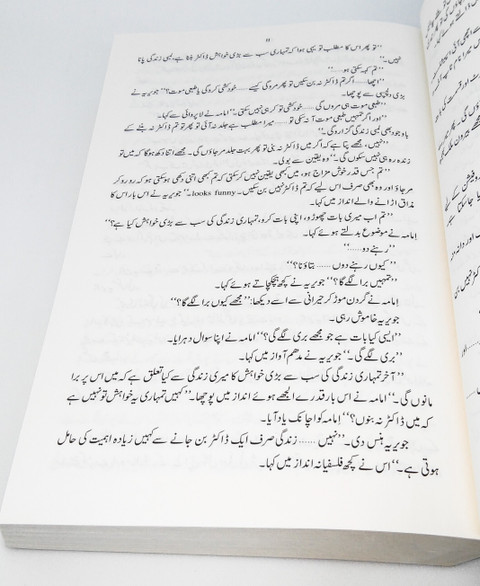 11
”تو پھر اس کا مطلب تو یہی ہوا کہ تمہاری سب سے بڑی خواہش ڈاکٹر بننا ہے، لمبی زندگی پانا
نہیں۔“
”تم کہہ سکتی ہو......“
”اچھا...... اگر تم ڈاکٹر نہ بن سکیں تو پھر مرو گی کیسے...... خودکشی کرو گی یا طبعی موت؟“ جویریہ نے
بڑی دلچسپی سے پوچھا۔
”طبعی موت ہی مروں گی...... خودکشی تو کر ہی نہیں سکتی۔“ امامہ نے لاپروائی سے کہا۔
”اور اگر تمہیں طبعی موت آ نہ سکی تو...... میرا مطلب ہے جلد نہ آئی تو پھر تو تم ڈاکٹر نہ بننے کے
باوجود بھی لمبی زندگی گزارو گی۔“
”نہیں، مجھے پتا ہے کہ اگر میں ڈاکٹر نہ بنی تو پھر بہت جلد مر جاؤں گی۔ مجھے اتنا دکھ ہو گا کہ میں تو
زندہ رہ ہی نہیں سکوں گی۔“ وہ یقین سے بولی۔
”تم جس قدر خوش مزاج ہو، میں کبھی یقین نہیں کر سکتی کہ تم کبھی اتنی دکھی ہو سکتی ہو کہ رو رو کر
مر جاؤ اور وہ بھی صرف اس لیے کہ تم ڈاکٹر نہیں بن سکیں۔ looks funny۔“ جویریہ نے اس بار اس کا
مذاق اڑانے والے انداز میں کہا۔
”تم اب میری بات چھوڑو، اپنی بات کرو، تمہاری زندگی کی سب سے بڑی خواہش کیا ہے؟“
امامہ نے موضوع بدلتے ہوئے کہا۔
”رہنے دو......“
”کیوں رہنے دوں...... بتاؤ نا؟“
”تمہیں برا لگے گا؟“ جویریہ نے کچھ ہچکچاتے ہوئے کہا۔
امامہ نے گردن موڑ کر حیرانی سے اسے دیکھا: ”مجھے کیوں برا لگے گا؟“
جویریہ خاموش رہی۔
”ایسی کیا بات ہے جو مجھے بری لگے گی؟“ امامہ نے اپنا سوال دہرایا۔
”بری لگے گی۔“ جویریہ نے مدھم آواز میں کہا۔
”آخر تمہاری زندگی کی سب سے بڑی خواہش کا میری زندگی سے کیا تعلق ہے کہ میں اس پر برا
مانوں گی۔“ امامہ نے اس بار قدرے الجھے ہوئے انداز میں پوچھا۔ ”کہیں تمہاری یہ خواہش تو نہیں ہے
کہ میں ڈاکٹر نہ بنوں؟“ امامہ کو اچانک یاد آیا۔
جویریہ ہنس دی۔ ”نہیں...... زندگی صرف ایک ڈاکٹر بن جانے سے کہیں زیادہ اہمیت کی حامل
ہوتی ہے۔“ اس نے کچھ فلسفیانہ انداز میں کہا۔